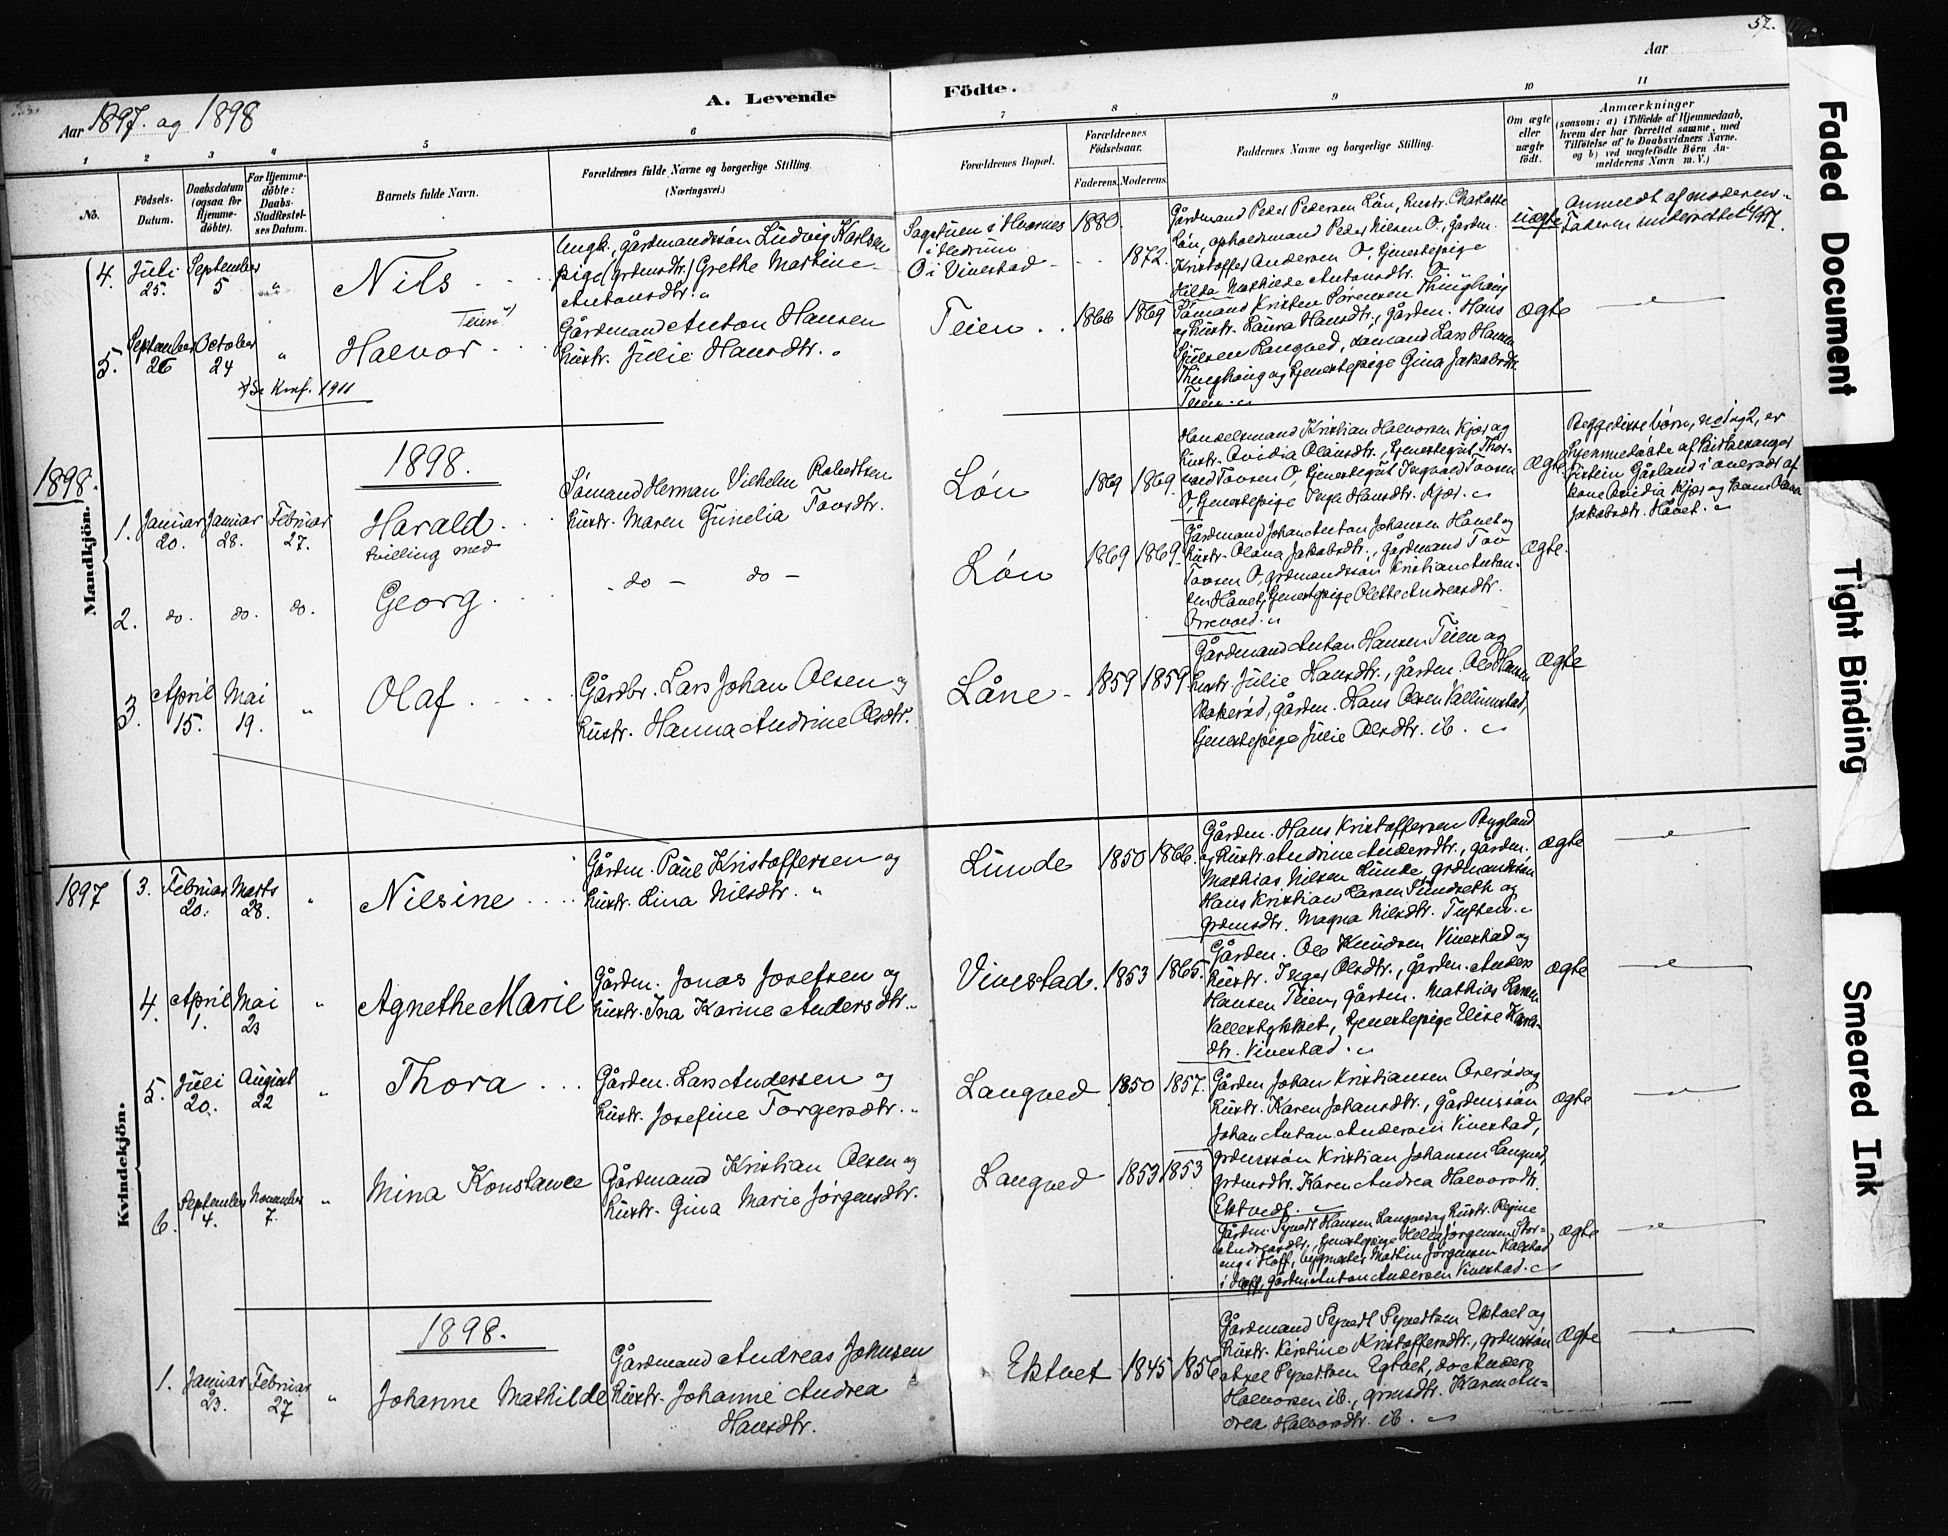 57.
Aar 1897. og 1898
A. Levende
Födte.
Aar
1 2 3 4 5 6 7 8 9 10 11
No.
Födsels-
Datum.
Daabsdatum
(ogsaa for
Hjemme-
döbte).
For Hjemme-
döbte:
Daabs-
Stadfestel-
ses Datum.
Barnets fulde Navn.
Forældrenes fulde Navne og borgerlige Stilling.
(Næringsvei.)
Forældrenes Bopæl.
Forældrenes
Födselsaar.
Faderens. Moderens.
Faddernes Navne og borgerlige Stilling.
Om ægte
eller
uægte
födt.
Anmærkninger
(saasom: a) i Tilfælde af Hjemmedaab,
hvem der har forrettet samme, med
Tilföielse af to Daabsvidners Navne.
og b) ved uægtefödte Börn An-
melderens Navn m. V.)
Mandkjön.
4. Juli 25. September 5 " Nils
Ungk., gårdmandssøn Ludvig Karlsen
pige (grdmsdtr.) Grethe Martine
Antonsdtr. "
i Hedrum
O i Vivestad
1880.
1872.
Gårdmand Peder Pedersen Løn, hustr. Charlotte
Løn, opholdsmand Peder Nilsen O, gårdm.
Kristoffer Andersen O, tjenestepige
Hilda Mathilde Antonsdtr. O.
uægte
Anmeldt af moderen.
Faderen underrettet
5. September 26 October 24 " Halvor
Teien
Gårdmand Anton Hansen
hustr. Julie Hansdtr. "
Teien
1866 1869
Sømand Kristen Sørensen Thinghaug
og hustr. Laura Hansdtr., gårdm. Hans
Langved, sømand Lars Hansen
Thinghaug og tjenestepige Gina Jakobsdtr.
Teien.
ægte
Konf. 1911
1898.
1898.
1. Januar 20. Januar 28. Februar 27. Harald
tvilling med
Sømand Herman Vilhelm Robertsen
hustr. Maren Gunelia Tovsdtr.
Løn
1869 1869.
Handelsmand Kristian Halvorsen Kjær og
hustr. Ovidia Olausdtr., tjenestegut Thor-
vald Tovsen O, tjenestegut Ingvald Tovsen
O, tjenestepige Inga Hansdtr. Kjær.
ægte.
Begge disse børn, no 1 og 2, er
hjemmedøbte af
Gåsland i overvær af
kone Ovidia Kjær og kone Olava
Jakobsdtr. Håvet.
2. do. do. do. Georg
do - do -
Løn
1869 1869.
Gårdmand Johan Anton Johansen Håvet og
hustr. Olava Jakobsdtr., gårdmand Tov
Tovsen O, grdmandssøn Kristian Anton-
sen Håvet, tjenestepige Olette Andreasdtr.
Orrevold.
ægte.
3. April 15. Mai 19. " Olaf
Gårdbr. Lars Johan Olsen og
hustr. Hanna Andrine Olsdtr.
Låne
1859 1859.
Gårdmand Anton Hansen Teien og
hustr. Julie Hansdtr., gårdm. Ole Hansen
Bakerød, gårdm. Hans Olsen Vallumstad,
tjenestepige Julie Olsdtr. ib.
ægte
1897
Kvindekjön.
3. Februar 20. Marts 28. " Nilsine
Gårdm. Paul Kristoffersen og
hustr. Lina Nilsdtr. "
Lunde
1850 1866.
Gårdm. Hans Kristoffersen Bugland
og hustr. Andrine Andersdtr., gårdm.
Mathias Nilsen Lunde, grdmandssøn
Hans Kristian Larsen Sundseth og
grdmsdtr. Magna Nilsdtr. Tuften.
ægte
4. April 1. Mai 23 " Agnethe Marie
Gårdm. Jonas Josefsen og
hustr. Ina Karine Andersdtr.
Vivestad.
1853 1865.
Gårdm. Ole Knudsen Vivestad og
hustr. Inger Olsdtr., gårdm. Anders
Hansen Teien, gårdm. Mathias Larsen
Vallestykket, tjenestepige Elise Karls-
dtr. Vivestad.
ægte
5. Juli 20. August 22 " Thora
Gårdm. Lars Andersen og
hustr. Josefine Torgersdtr.
Langved
1850 1857.
Gårdm. Johan Kristiansen Orerød og
hustr. Karen Johansdtr., gårdmssøn
Johan Anton Andersen Vivestad,
grdmssøn Kristian Johansen Langved,
grdmsdtr. Karen Andrea Halvorsdtr.
Ektvedt.
ægte
6. September 4. November 7. " Mina Konstance
Gårdmand Kristian Olsen og
hustr. Gina Marie Jørgensdtr.
Langved
1853 1853
Gårdm. Syvert Hansen Langved og hustr. Regine
Andreasdtr., tjenestepige Helga Jørgensen Stor-
eng i Hoff, bygmester Martin Jørgensen
i Hoff, gårdm. Anton Andersen Vivestad.
ægte
1898.
1. Januar 23. Februar 27 " Johanne Mathilde
Gårdmand Andreas Johnsen
hustr. Johanne Andrea
Hansdtr.
Ektvet
1845 1856
Gårdmand Syvert Syvertsen Ektvet og
hustr. Kirstine Kristoffersdtr., grdmssøn
Axel Syvertsen Egtvet, do Anders
Halvorsen ib., grmsdtr. Karen An-
drea Halvorsdtr. ib.
ægte
Faded Document
Tight Binding
Smeared Ink